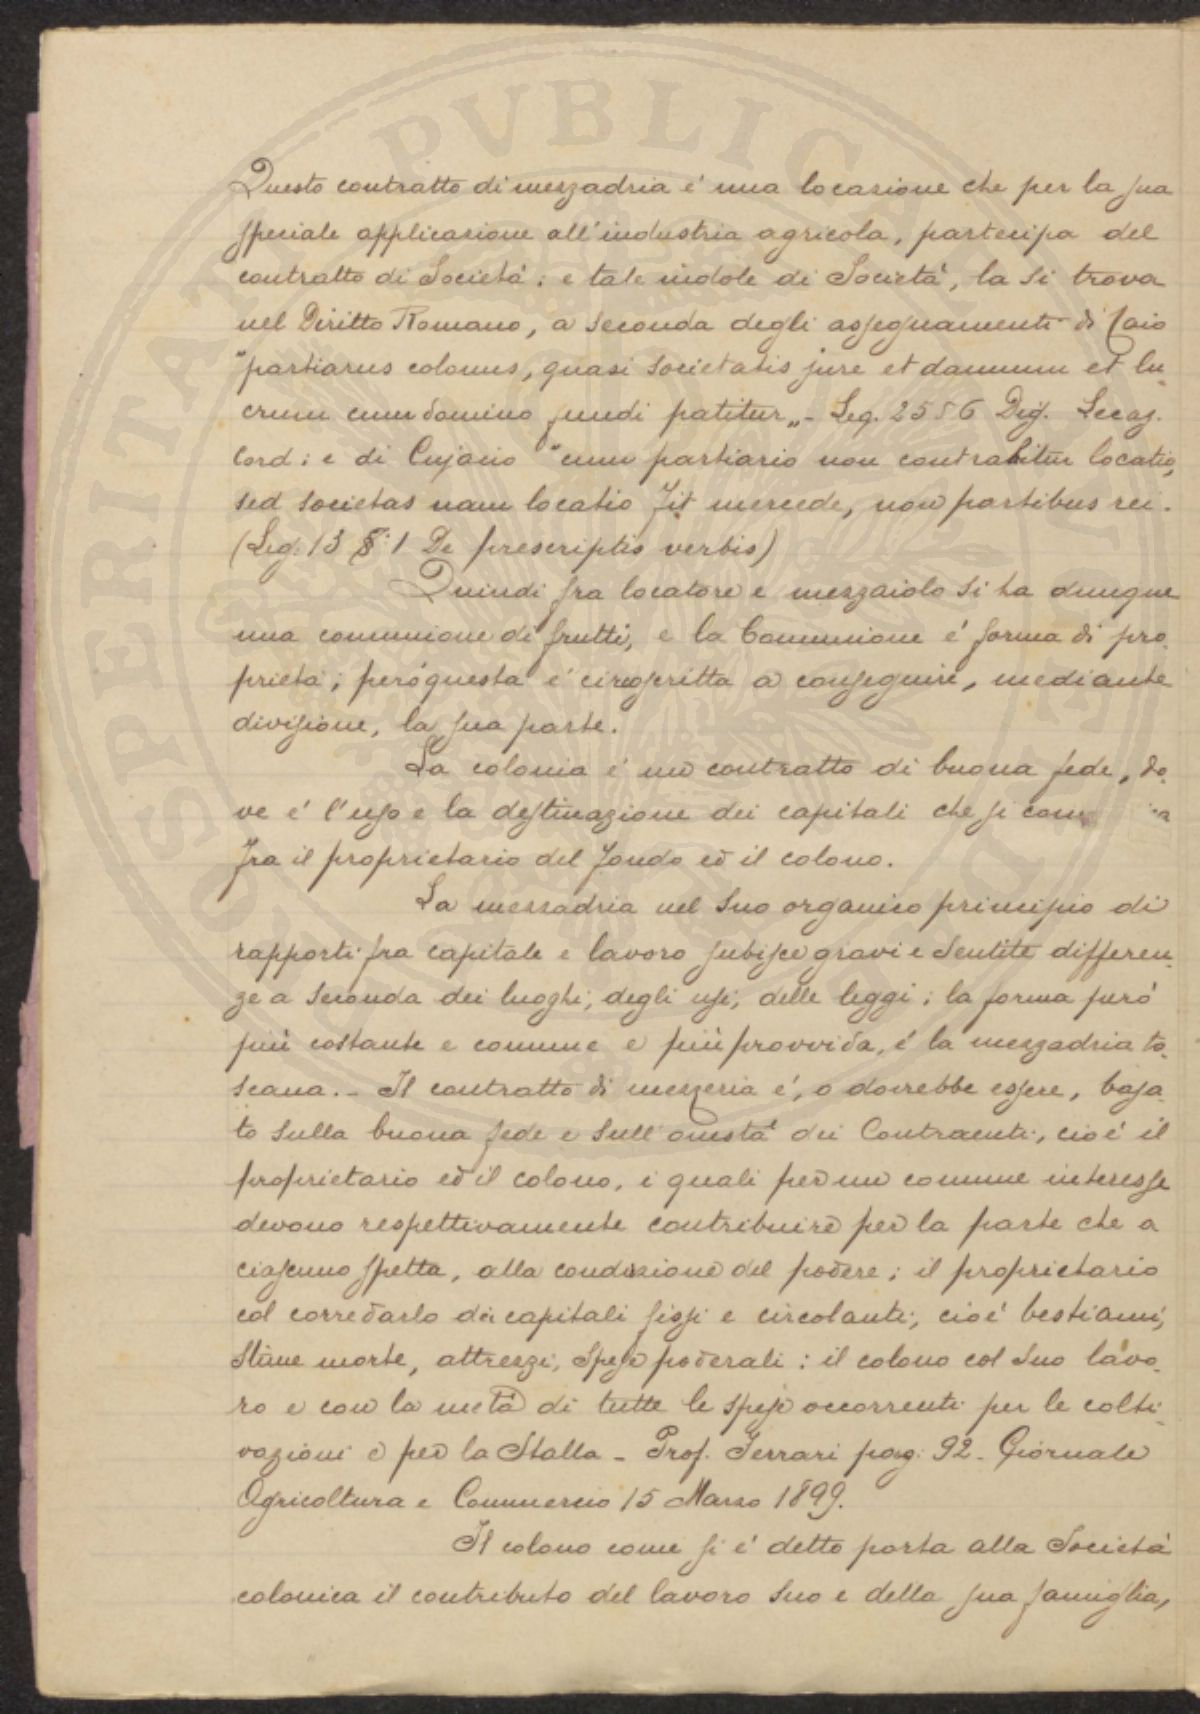 Questo contratto di mezzadria é una locazione che per la sua
speciale applicazione all'industria agricola, partecipa del
contratto di Società: e tale indole di Società, la si trova
nel Diritto Romano, a seconda degli assegnamenti di Caio
"partiarus colonus, quasi societatis jure et damnum et lu-
crum cum domino fundi patitur„ - Leg. 25 § 6 Dig.
Cond: e di Cujacio "cum partiario non contrahitur locatio,
sed societas nam locatio fit mercede, non partibus rei.
(Leg: 13 §: 1 De prescriptis verbis)
Quindi fra locatore e mezzaiolo si ha dunque
una comunione di frutti, e la Comunione é forma di pro-
prietà; peró questa é circoscritta a conseguire, mediante
divisione, la sua parte.
La colonia é un contratto di buona fede, do-
ve é l'uso e la destinazione dei capitali che si
fra il proprietario del fondo ed il colono.
La mezzadria nel suo organico principio di
rapporti fra capitale e lavoro subisce gravi e sentite differen-
ze a seconda dei luoghi, degli usi, delle leggi; la forma peró
piú costante e comune e piú provvida, é la mezzadria to-
scana. - Il contratto di mezzeria é, o dovrebbe essere, basa-
to sulla buona fede e sull'onestà dei Contraenti, cioé il
proprietario ed il colono, i quali per un comune interesse
devono respettivamente contribuire per la parte che a
ciascuno spetta, alla conduzione del podere; il proprietario
col corredarlo dei capitali fissi e circolanti, cioé bestiami,
stime morte, attrezzi, spese poderali: il colono col suo lavo-
ro e con la metà di tutte le spese occorrenti per le colti-
vazioni e per la Stalla - Prof. Ferrari pag. 92 - Giornale
Agricoltura e Commercio 15 Marzo 1899.
Il colono come si é detto porta alla Società
colonica il contributo del lavoro suo e della sua famiglia,